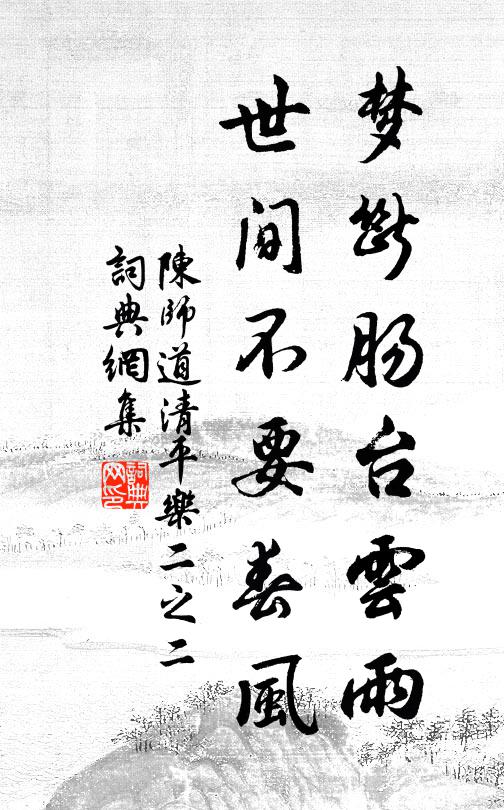 梦断肠台雲雨
世间不要春風
陳師道清平樂二之二
詞典網集
詞典网印